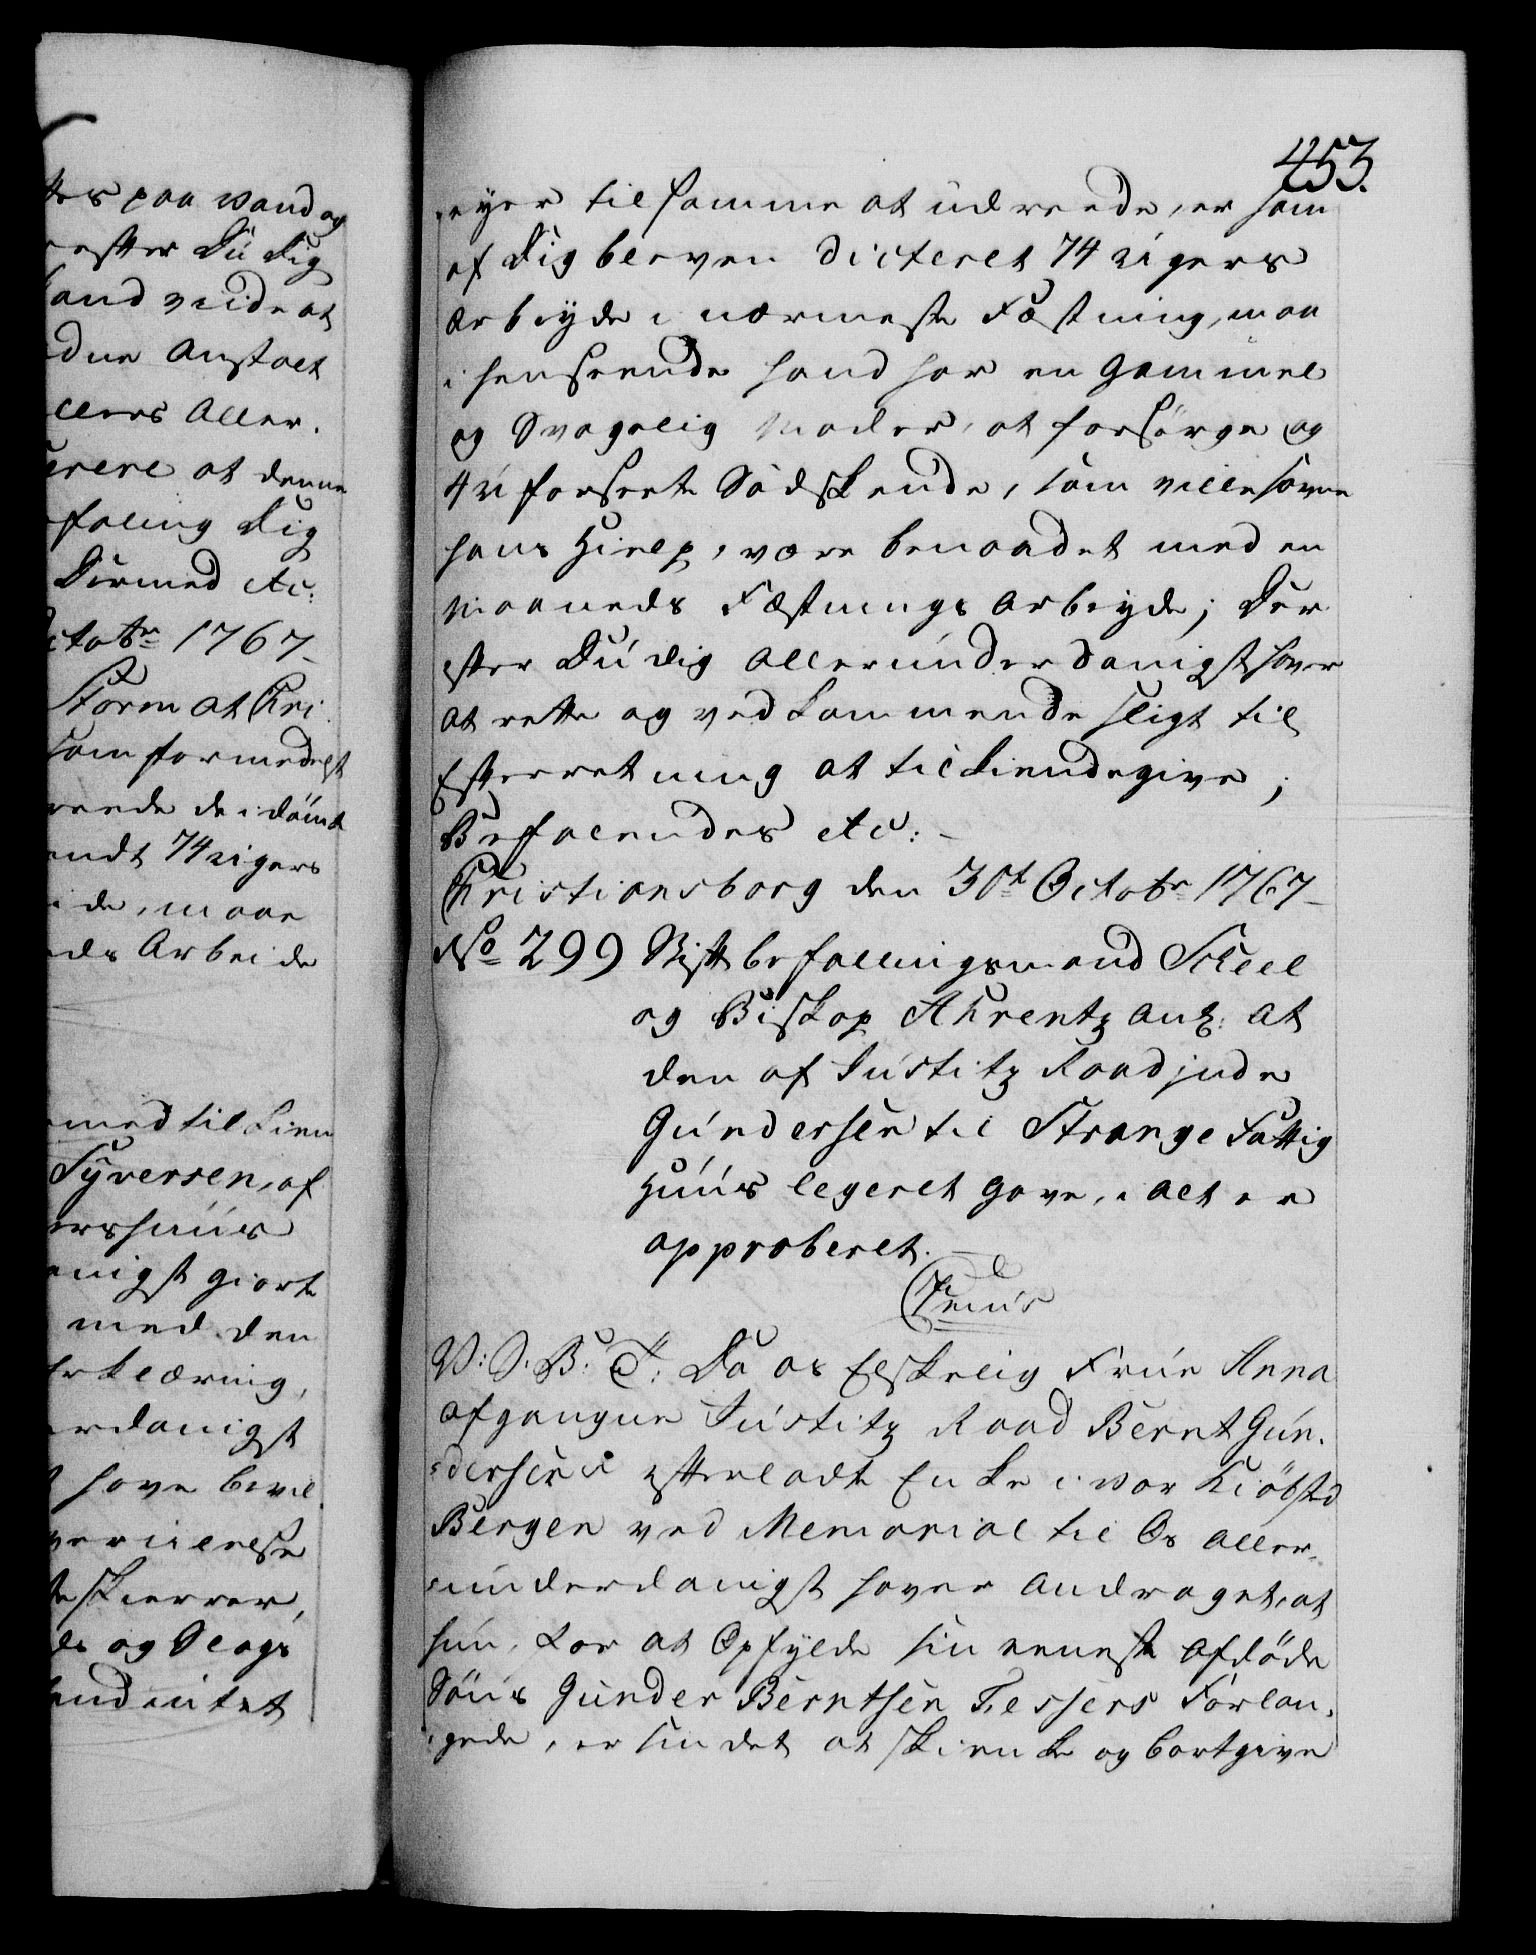 tes paa Vand og
efter Du Dig
and viide at
dne Anstalt
llers Aller.
erere at denne
faling Dig
Dermed etc:
Octobr 1767
Storm at Chri
som formedelst
reede de idömt
endt 74 ugers
ide, maae
eds Arbeide
med til kien
Syversen, af
ershuus
enigst giort
med den
rklæring,
erdanigst
t have bevil
de og Slags
453.
eyer til samme at udreede, er som
af Dig bleven dicteret 74 ugers
Arbeyde i nærmeste Fæstning, maa
i henseende hand har en gammel
og Svagelig Moder, at forsörge og
4 uforsørte Södskende, som ville savne
hans Hielp, være benaadet med en
Maaneds Fæstnings Arbeyde; Der
efter Du dig allerunderdanigst haver
at rette og vedkommende sligt til
Efterretning at tilkiendegive;
Befalendes etc:
Christiansborg den 30t Octobr 1767
No 299 Stiftbefalingsmand Scheel
og Biskop Ahrentz ang: at
den af Justitz Raad jude
Gundersen til Strange Fattig
Huus legeret Gave, i alt er
approberet.
V: S. B: T: Da os Elskelig Frue Anna
afgangne Justitz Raad Bernt Gun-
dersens efterladte Enke i vor Kiöbsted
Bergen ved Memorial til Os aller-
underdanigst haver andraget, at
hun, for at Opfylde sin eeneste afdöde
Söns Gunder Berntsen Fessers Forlan-
gende, er sindet at skienke og bortgive